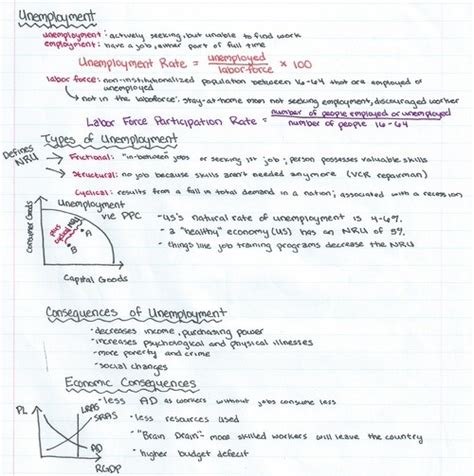 Unemployment
unemployment: actively seeking, but unable to find work
employment: have a job, either part or full time
Unemployment Rate = unemployed / labor force × 100
labor force: non-institutionalized population between 16-64 that are employed or
unemployed
→ not in the laborforce: stay-at-home mom not seeking employment, discouraged worker
Labor Force Participation Rate = number of people employed or unemployed / number of people 16-64
Types of Unemployment
Defines NRU
Frictional: "in-between" jobs or seeking 1st job; person possesses valuable skills
Structural: no job because skills aren't needed anymore (VCR repairman)
Cyclical: results from a fall in total demand in a nation; associated with a recession
Unemployment
vie PPC
- US's natural rate of unemployment is 4-6%.
- a "healthy" economy (US) has an NRU of 5%
- things like job training programs decrease the NRU
Consumer Goods
plus cyclical NRU
A
B
Capital Goods
Consequences of Unemployment
- decreases income, purchasing power
- increases psychological and physical illnesses
- more poverty and crime
- social changes
Economic Consequences
- less AD as workers without jobs consume less
- less resources used
- "Brain Drain" - more skilled workers will leave the country
- higher budget deficit
PL
LRAS
SRAS
AD
RGDP